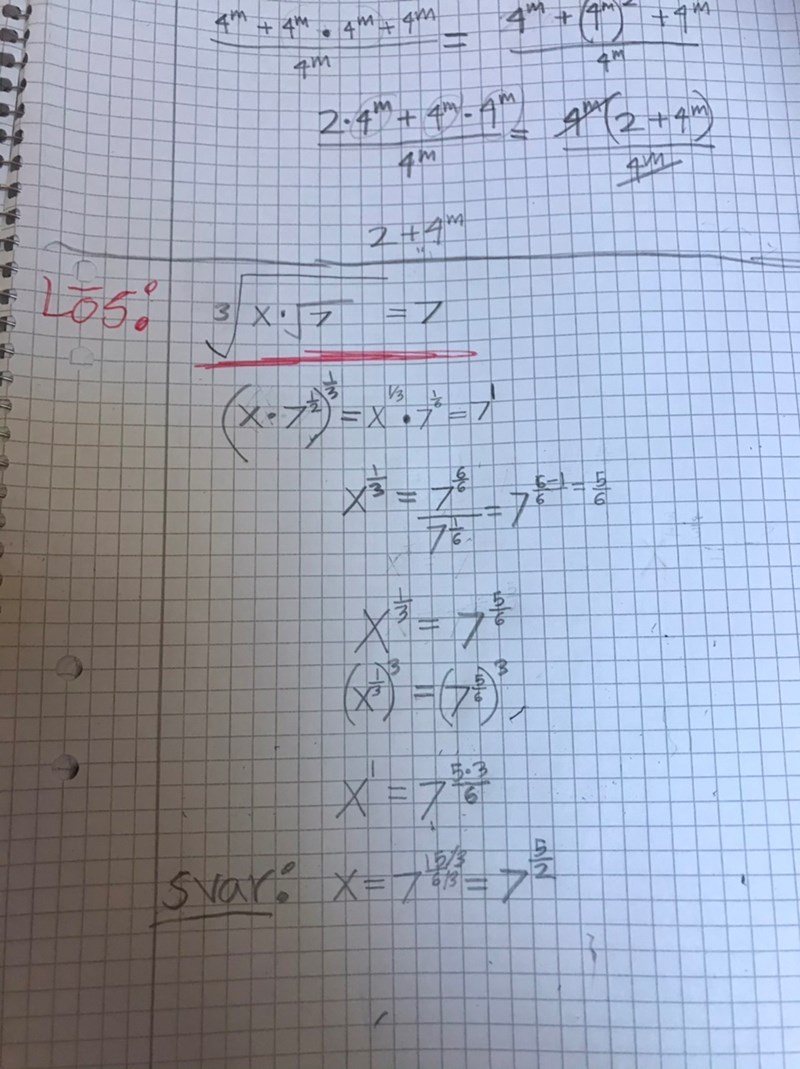 (4^m + 4^m · 4^m + 4^m)/4^m = (4^m + (4^m)^2 + 4^m)/4^m
(2·4^m + 4^m · 4^m)/4^m = 4^m(2 + 4^m)/4^m
2 + 4^m
LÖS: ∛(x·√7) = 7
(x·7^(1/2))^(1/3) = x^(1/3) · 7^(1/6) = 7^1
x^(1/3) = 7^(6/6)/7^(1/6) = 7^((6-1)/6 = 5/6)
x^(1/3) = 7^(5/6)
(x^(1/3))^3 = (7^(5/6))^3
x^1 = 7^((5·3)/6)
svar: x = 7^((15/3)/(6/3)) = 7^(5/2)